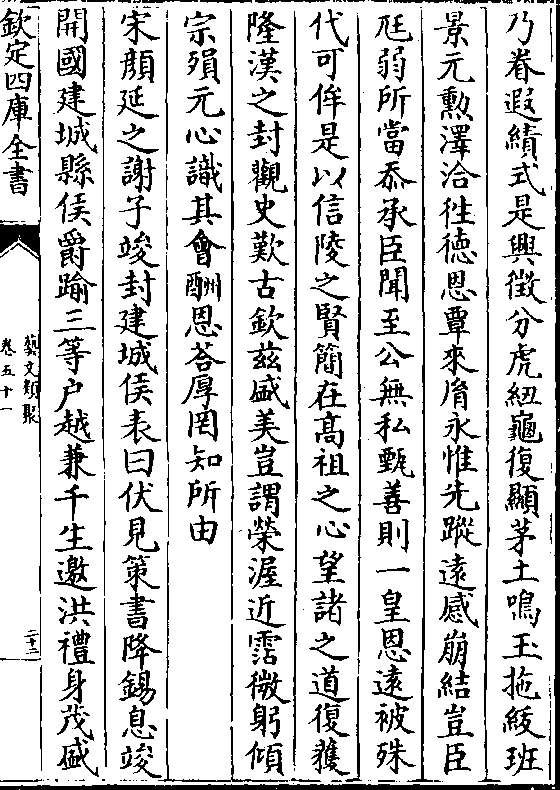 乃眷遐績式是興徵分虎紐龜復顯茅土鳴玉拖綬班
景元勲澤洽徃徳恩覃來胤永惟先蹤遠感崩結豈臣
尫弱所當忝承臣聞至公無私甄善則一皇恩遠被殊
代可侔是以信陵之賢簡在髙祖之心望諸之道復獲
隆漢之封觀史歎古欽兹盛美豈謂榮渥近霑微躬傾
宗殞元心識其㑹酬恩荅厚罔知所由
宋顔延之謝子竣封建城侯表曰伏見策書降錫息竣
開國建城縣侯爵踰三等户越兼千生邀洪禮身茂盛
欽定四庫全書
藝文類聚
卷五十一
二十二